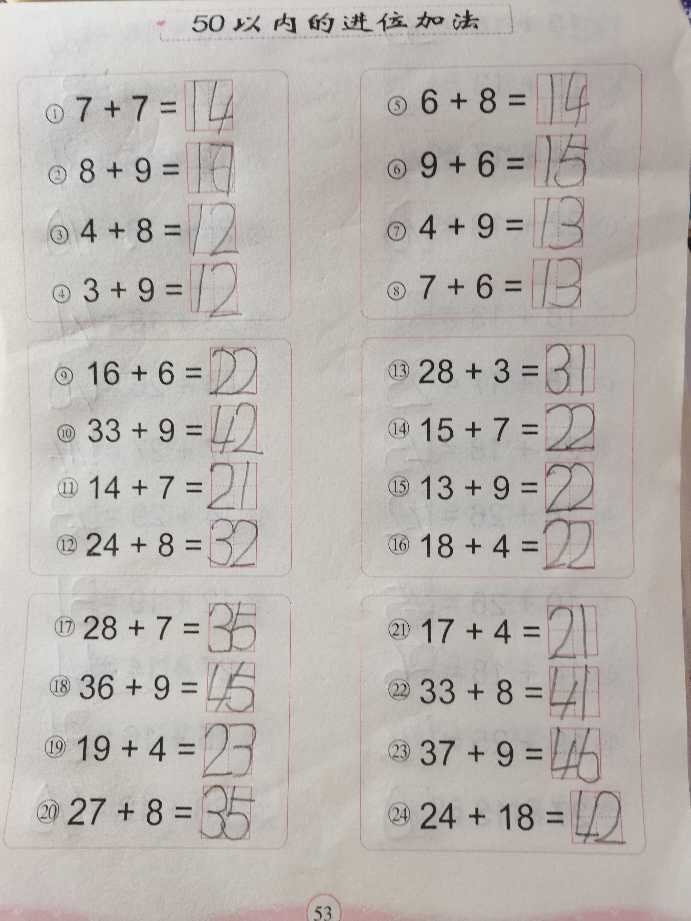 50以内的进位加法
① 7 + 7 = 14
② 8 + 9 = 17
③ 4 + 8 = 12
④ 3 + 9 = 12
⑤ 6 + 8 = 14
⑥ 9 + 6 = 15
⑦ 4 + 9 = 13
⑧ 7 + 6 = 13
⑨ 16 + 6 = 22
⑩ 33 + 9 = 42
⑪ 14 + 7 = 21
⑫ 24 + 8 = 32
⑬ 28 + 3 = 31
⑭ 15 + 7 = 22
⑮ 13 + 9 = 22
⑯ 18 + 4 = 22
⑰ 28 + 7 = 35
⑱ 36 + 9 = 45
⑲ 19 + 4 = 23
⑳ 27 + 8 = 35
㉑ 17 + 4 = 21
㉒ 33 + 8 = 41
㉓ 37 + 9 = 46
㉔ 24 + 18 = 42
53